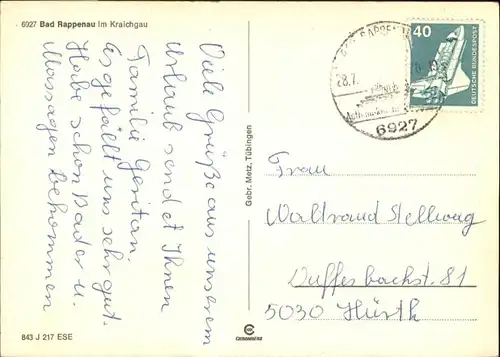 6927 Bad Rappenau im Kraichgau
Viele Grüße aus unserem
Urlaub sendet Ihnen
Familie Geritan.
Es gefällt uns sehr gut.
Habe schon Bäder u.
Massagen bekommen
843 J 217 ESE
Gebr. Metz, Tübingen
CEKAMERE
BAD RAPPENAU
28.7.
6927
40
DEUTSCHE BUNDESPOST
Frau
Waltraud Stellwag
Duffesbachst. 81
5030 Hürth